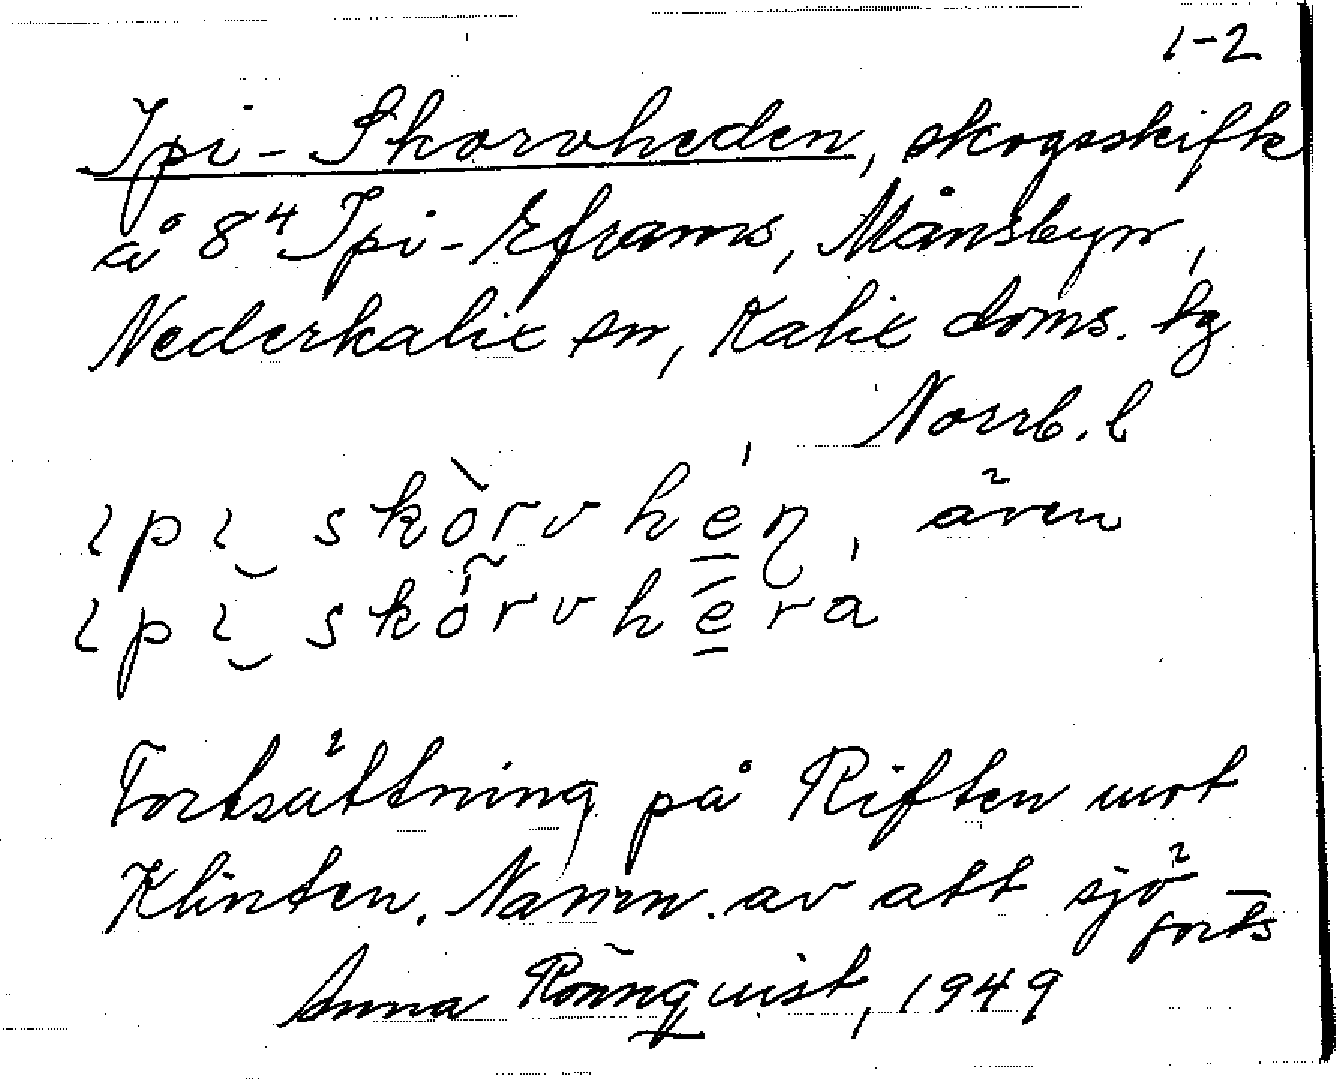 1-2
Ipi-Skorvheden, skogsskifte
å 8⁴ Ipi-Eframs, Månsbyn,
Nederkalix sn, Kalix doms. tg
Norrb. l
ɩpɩ‿ skòrvhe̲n, även
ɩpɩ‿ skorvhe̲ra
Fortsättning på Riften mot
Klinten. Namn. av att sjö–
forts
Anna Rönnquist, 1949